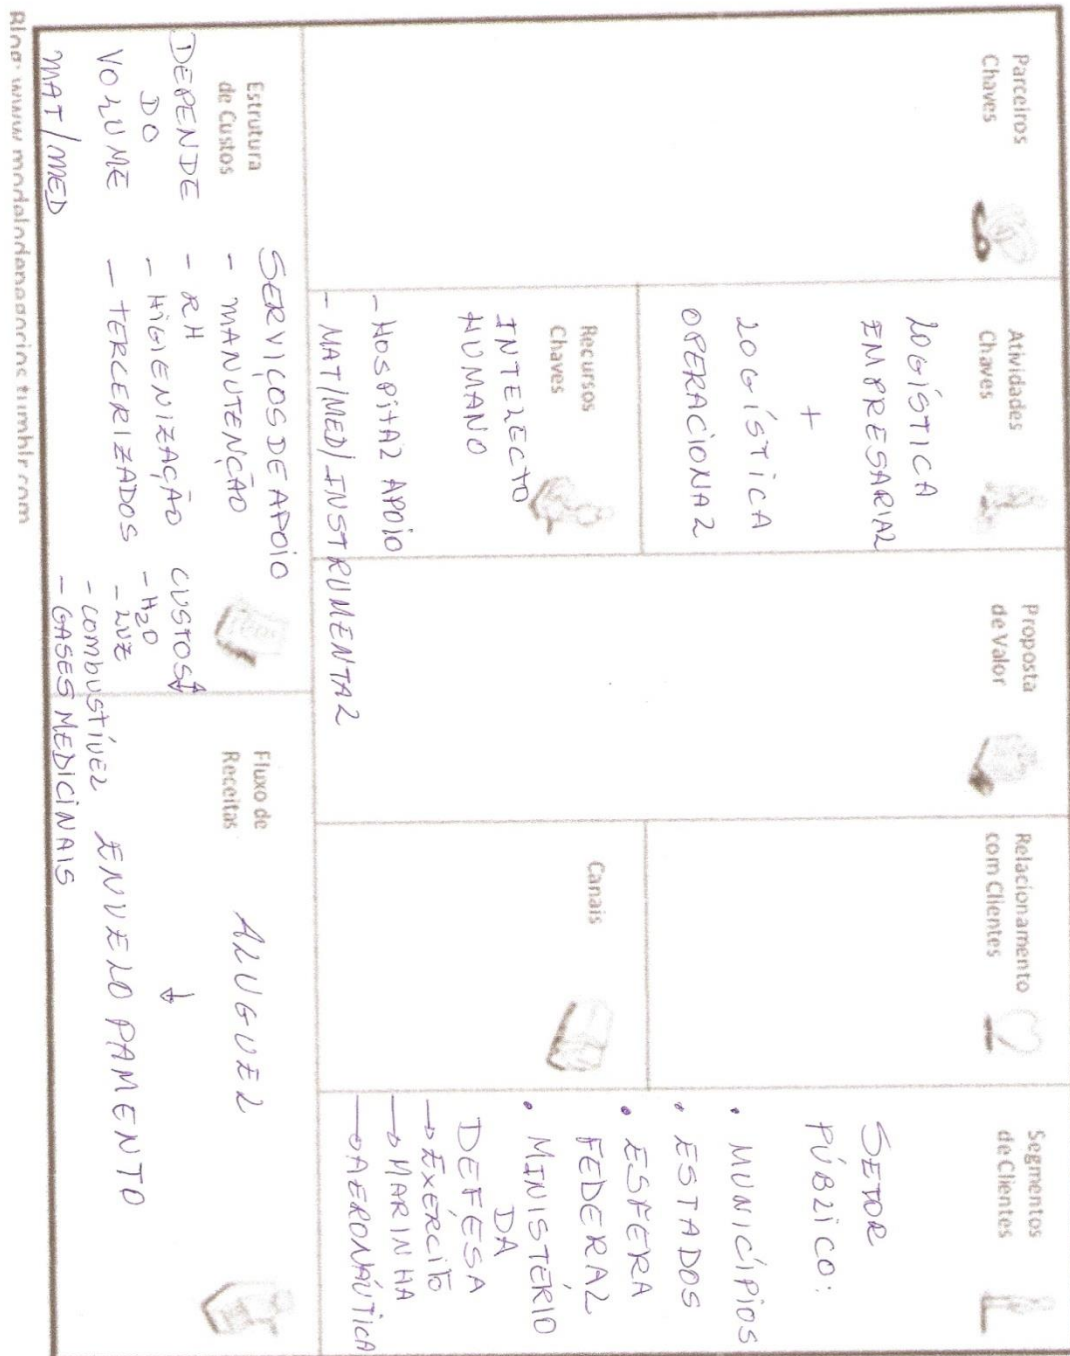 Parceiros
Chaves
Atividades
Chaves
LOGÍSTICA
EMPRESARIAL
+
LOGÍSTICA
OPERACIONAL
Recursos
Chaves
INTELECTO
HUMANO
- HOSPITAL APOIO
- MAT/MED/INSTRUMENTAL
Proposta
de Valor
Relacionamento
com Clientes
Canais
Segmentos
de Clientes
SETOR
PÚBLICO:
• MUNICÍPIOS
• ESTADOS
• ESFERA
FEDERAL
• MINISTÉRIO
DA
DEFESA
→ EXERCITO
→ MARINHA
→ AERONÁUTICA
Estrutura
de Custos
DEPENDE
DO
VOLUME
MAT/MED
SERVIÇOS DE APOIO
- MANUTENÇÃO
- RH
- HIGIENIZAÇÃO
- TERCERIZADOS
CUSTOS
- H2O
- LUZ
- COMBUSTÍVEL
- GASES MEDICINAIS
Fluxo de
Receitas
ALUGUEL
↓
ENVELOPAMENTO
Blog: www.modelodenegocios.tumblr.com